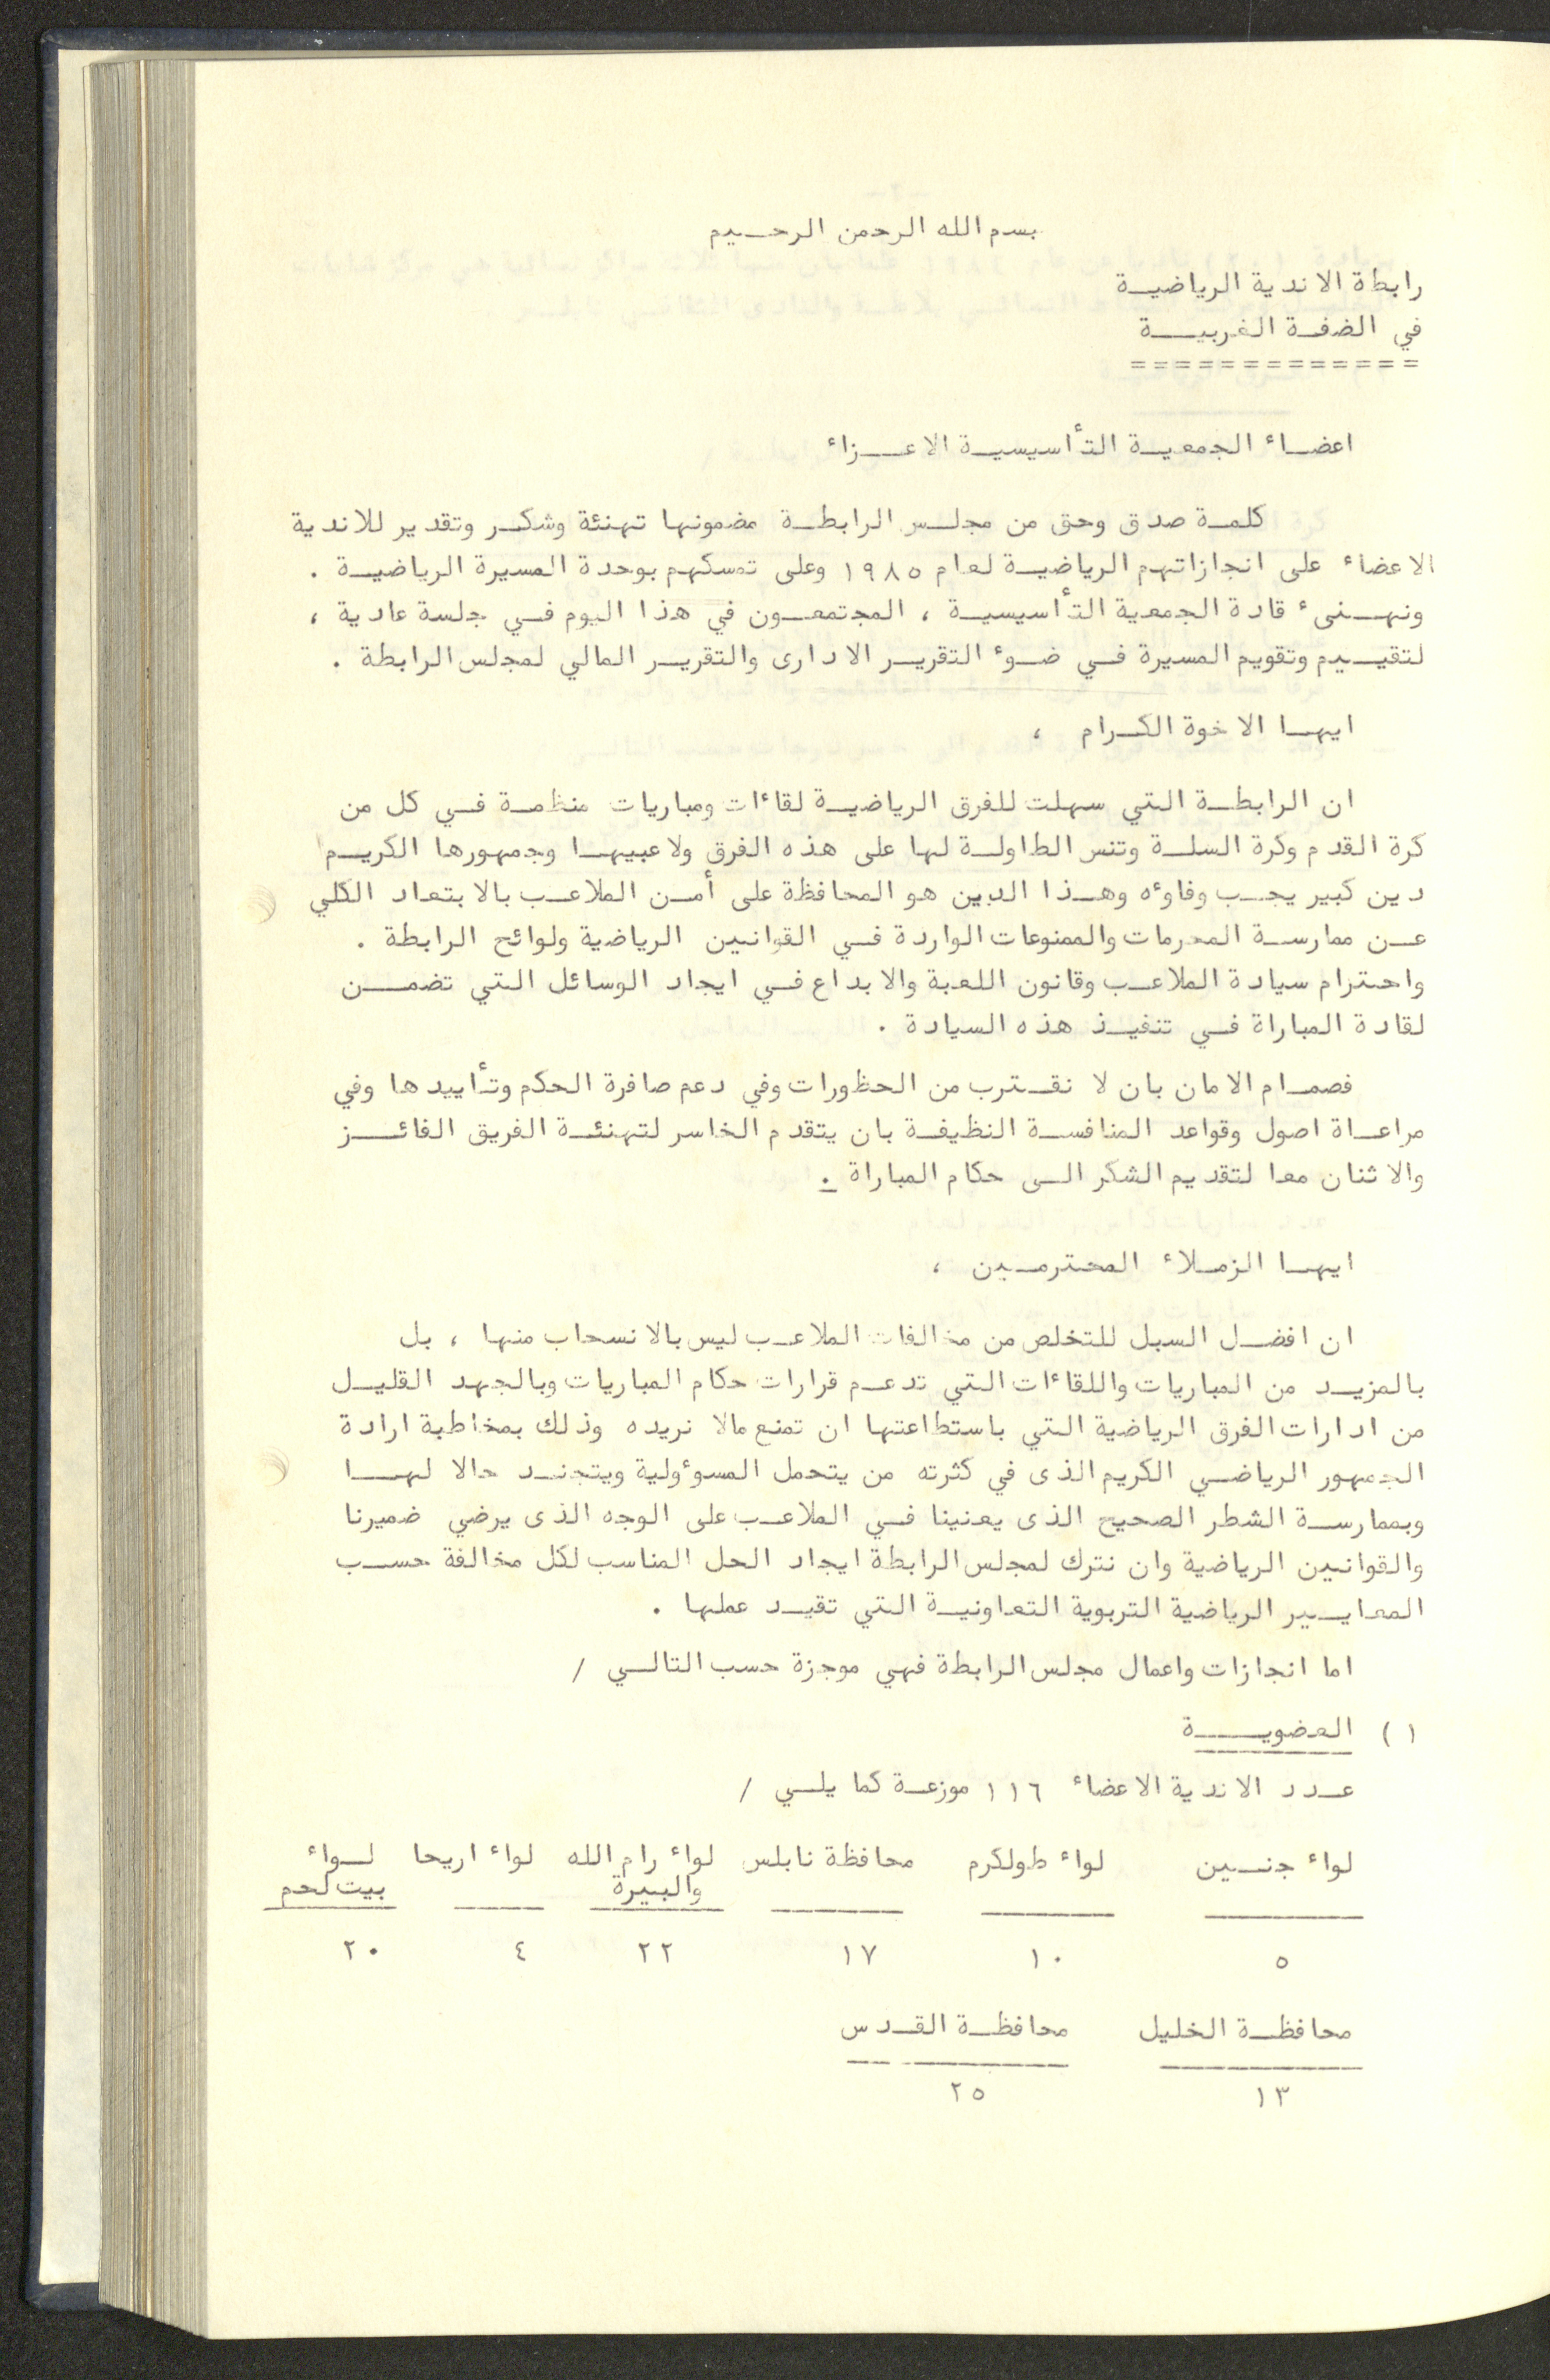 بسم الله الرحمن الرحيم
رابطة الاندية الرياضية
في الضفة الغربية
=============
اعضاء الجمعية التأسيسية الاعزاء
كلمة صدق وحق من مجلس الرابطة مضمونها تهنئة وشكر وتقدير للاندية
الاعضاء على انجازاتهم الرياضية لعام ١٩٨٥ وعلى تمسكهم بوحدة المسيرة الرياضية .
ونهنىء قادة الجمعية التأسيسية ، المجتمعون في هذا اليوم في جلسة عادية ،
لتقييم وتقويم المسيرة في ضوء التقرير الادارى والتقرير المالي لمجلس الرابطة .
ايها الاخوة الكرام ،
ان الرابطة التي سهلت للفرق الرياضية لقاءات ومباريات منظمة في كل من
كرة القدم وكرة السلة وتنس الطاولة لها على هذه الفرق ولاعبيها وجمهورها الكريم
دين كبير يجب وفاؤه وهذا الدين هو المحافظة على أمن الملاعب بالابتعاد الكلي
عن ممارسة المحرمات والممنوعات الواردة في القوانين الرياضية ولوائح الرابطة .
واحترام سيادة الملاعب وقانون اللعبة والابداع في ايجاد الوسائل التي تضمن
لقادة المباراة في تنفيذ هذه السيادة .
فصمام الامان بان لا نقترب من الحظورات وفي دعم صافرة الحكم وتأييدها وفي
مراعاة اصول وقواعد المنافسة النظيفة بان يتقدم الخاسر لتهنئة الفريق الفائز
والاثنان معا لتقديم الشكر الى حكام المباراة .
ايها الزملاء المحترمين ،
ان افضل السبل للتخلص من مخالفات الملاعب ليس بالانسحاب منها ، بل
بالمزيد من المباريات واللقاءات التي تدعم قرارات حكام المباريات وبالجهد القليل
من ادارات الفرق الرياضية التي باستطاعتها ان تمنع مالا نريده وذلك بمخاطبة ارادة
الجمهور الرياضي الكريم الذى في كثرته من يتحمل المسوؤلية ويتجند حالا لها
وبممارسة الشطر الصحيح الذى يعنينا في الملاعب على الوجه الذى يرضي ضميرنا
والقوانين الرياضية وان نترك لمجلس الرابطة ايجاد الحل المناسب لكل مخالفة حسب
المعايير الرياضية التربوية التعاونية التي تقيد عملها .
اما انجازات واعمال مجلس الرابطة فهي موجزة حسب التالي /
١) العضوية
عدد الاندية الاعضاء ١١٦ موزعة كما يلي /
لواء جنين لواء طولكرم محافظة نابلس لواء رام الله لواء اريحا لواء
والبيرة بيت لحم
٥ ١٠ ١٧ ٢٢ ٤ ٢٠
محافظة الخليل محافظة القدس
١٣ ٢٥